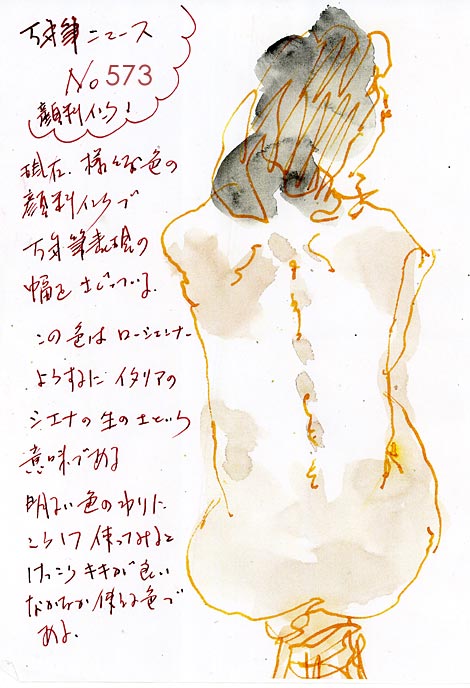 万年筆ニュース
No 573
顔料インク!
現在、様々な色の
顔料インクで
万年筆表現の
幅を広げている。
この色は ローシェンナー
ようするに イタリアの
シエナの生の土という
意味である
明るい色のわりに
こうして 使ってみると
けっこう キキが良い
なかなか使える色で
ある。